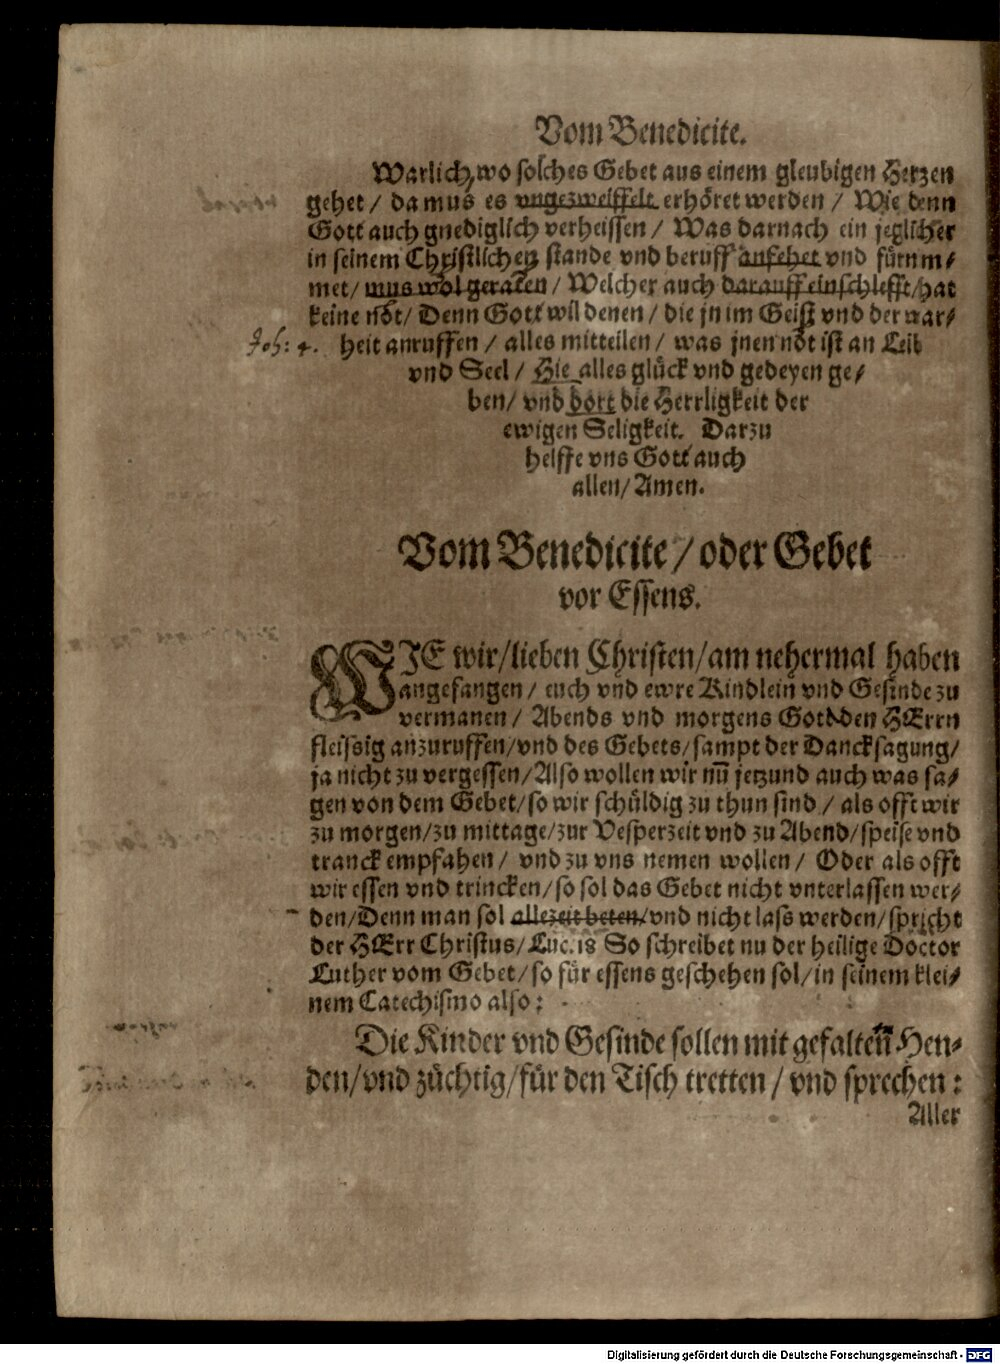 Vom Benedicite.
Warlich, wo solches Gebet aus einem gleubigen Hertzen
gehet / da mus es vngezweiffelt erhöret werden / Wie denn
Gott auch gnediglich verheissen / Was darnach ein jeglicher
in seinem Christlichen stande vnd beruff anfehet vnd fürnm⸗
met / mus wol geraten / Welcher auch darauff einschlefft / hat
keine not / Denn Gott wil denen / die jn im Geist vnd der war⸗
Joh: 4. heit anruffen / alles mitteilen / was jnen not ist an Leib
vnd Seel / Hie alles glück vnd gedeyen ge⸗
ben / vnd dort die Herrligkeit der
ewigen Seligkeit. Darzu
helffe vns Gott auch
allen / Amen.
Vom Benedicite / oder Gebet
vor Essens.
WIE wir / lieben Christen / am nehermal haben
angefangen / euch vnd ewre Kindlein vnd Gesinde zu
vermanen / Abends vnd morgens Gott den HErrn
fleissig anzuruffen / vnd des Gebets / sampt der Dancksagung /
ja nicht zu vergessen / Also wollen wir nu̅ jetzund auch was sa⸗
gen von dem Gebet / so wir schüldig zu thun sind / als offt wir
zu morgen / zu mittage / zur Vesperzeit vnd zu Abend / speise vnd
tranck empfahen / vnd zu vns nemen wollen / Oder als offt
wir essen vnd trincken / so sol das Gebet nicht vnterlassen wer⸗
den / Denn man sol allezeit beten / vnd nicht lass werden / spricht
der HErr Christus / Luc. 18 So schreibet nu der heilige Doctor
Luther vom Gebet / so für essens geschehen sol / in seinem klei⸗
nem Catechismo also :
Die Kinder vnd Gesinde sollen mit gefalten Hen⸗
den / vnd züchtig / für den Tisch tretten / vnd sprechen :
Aller
Digitalisierung gefördert durch die Deutsche Forschungsgemeinschaft - DFG